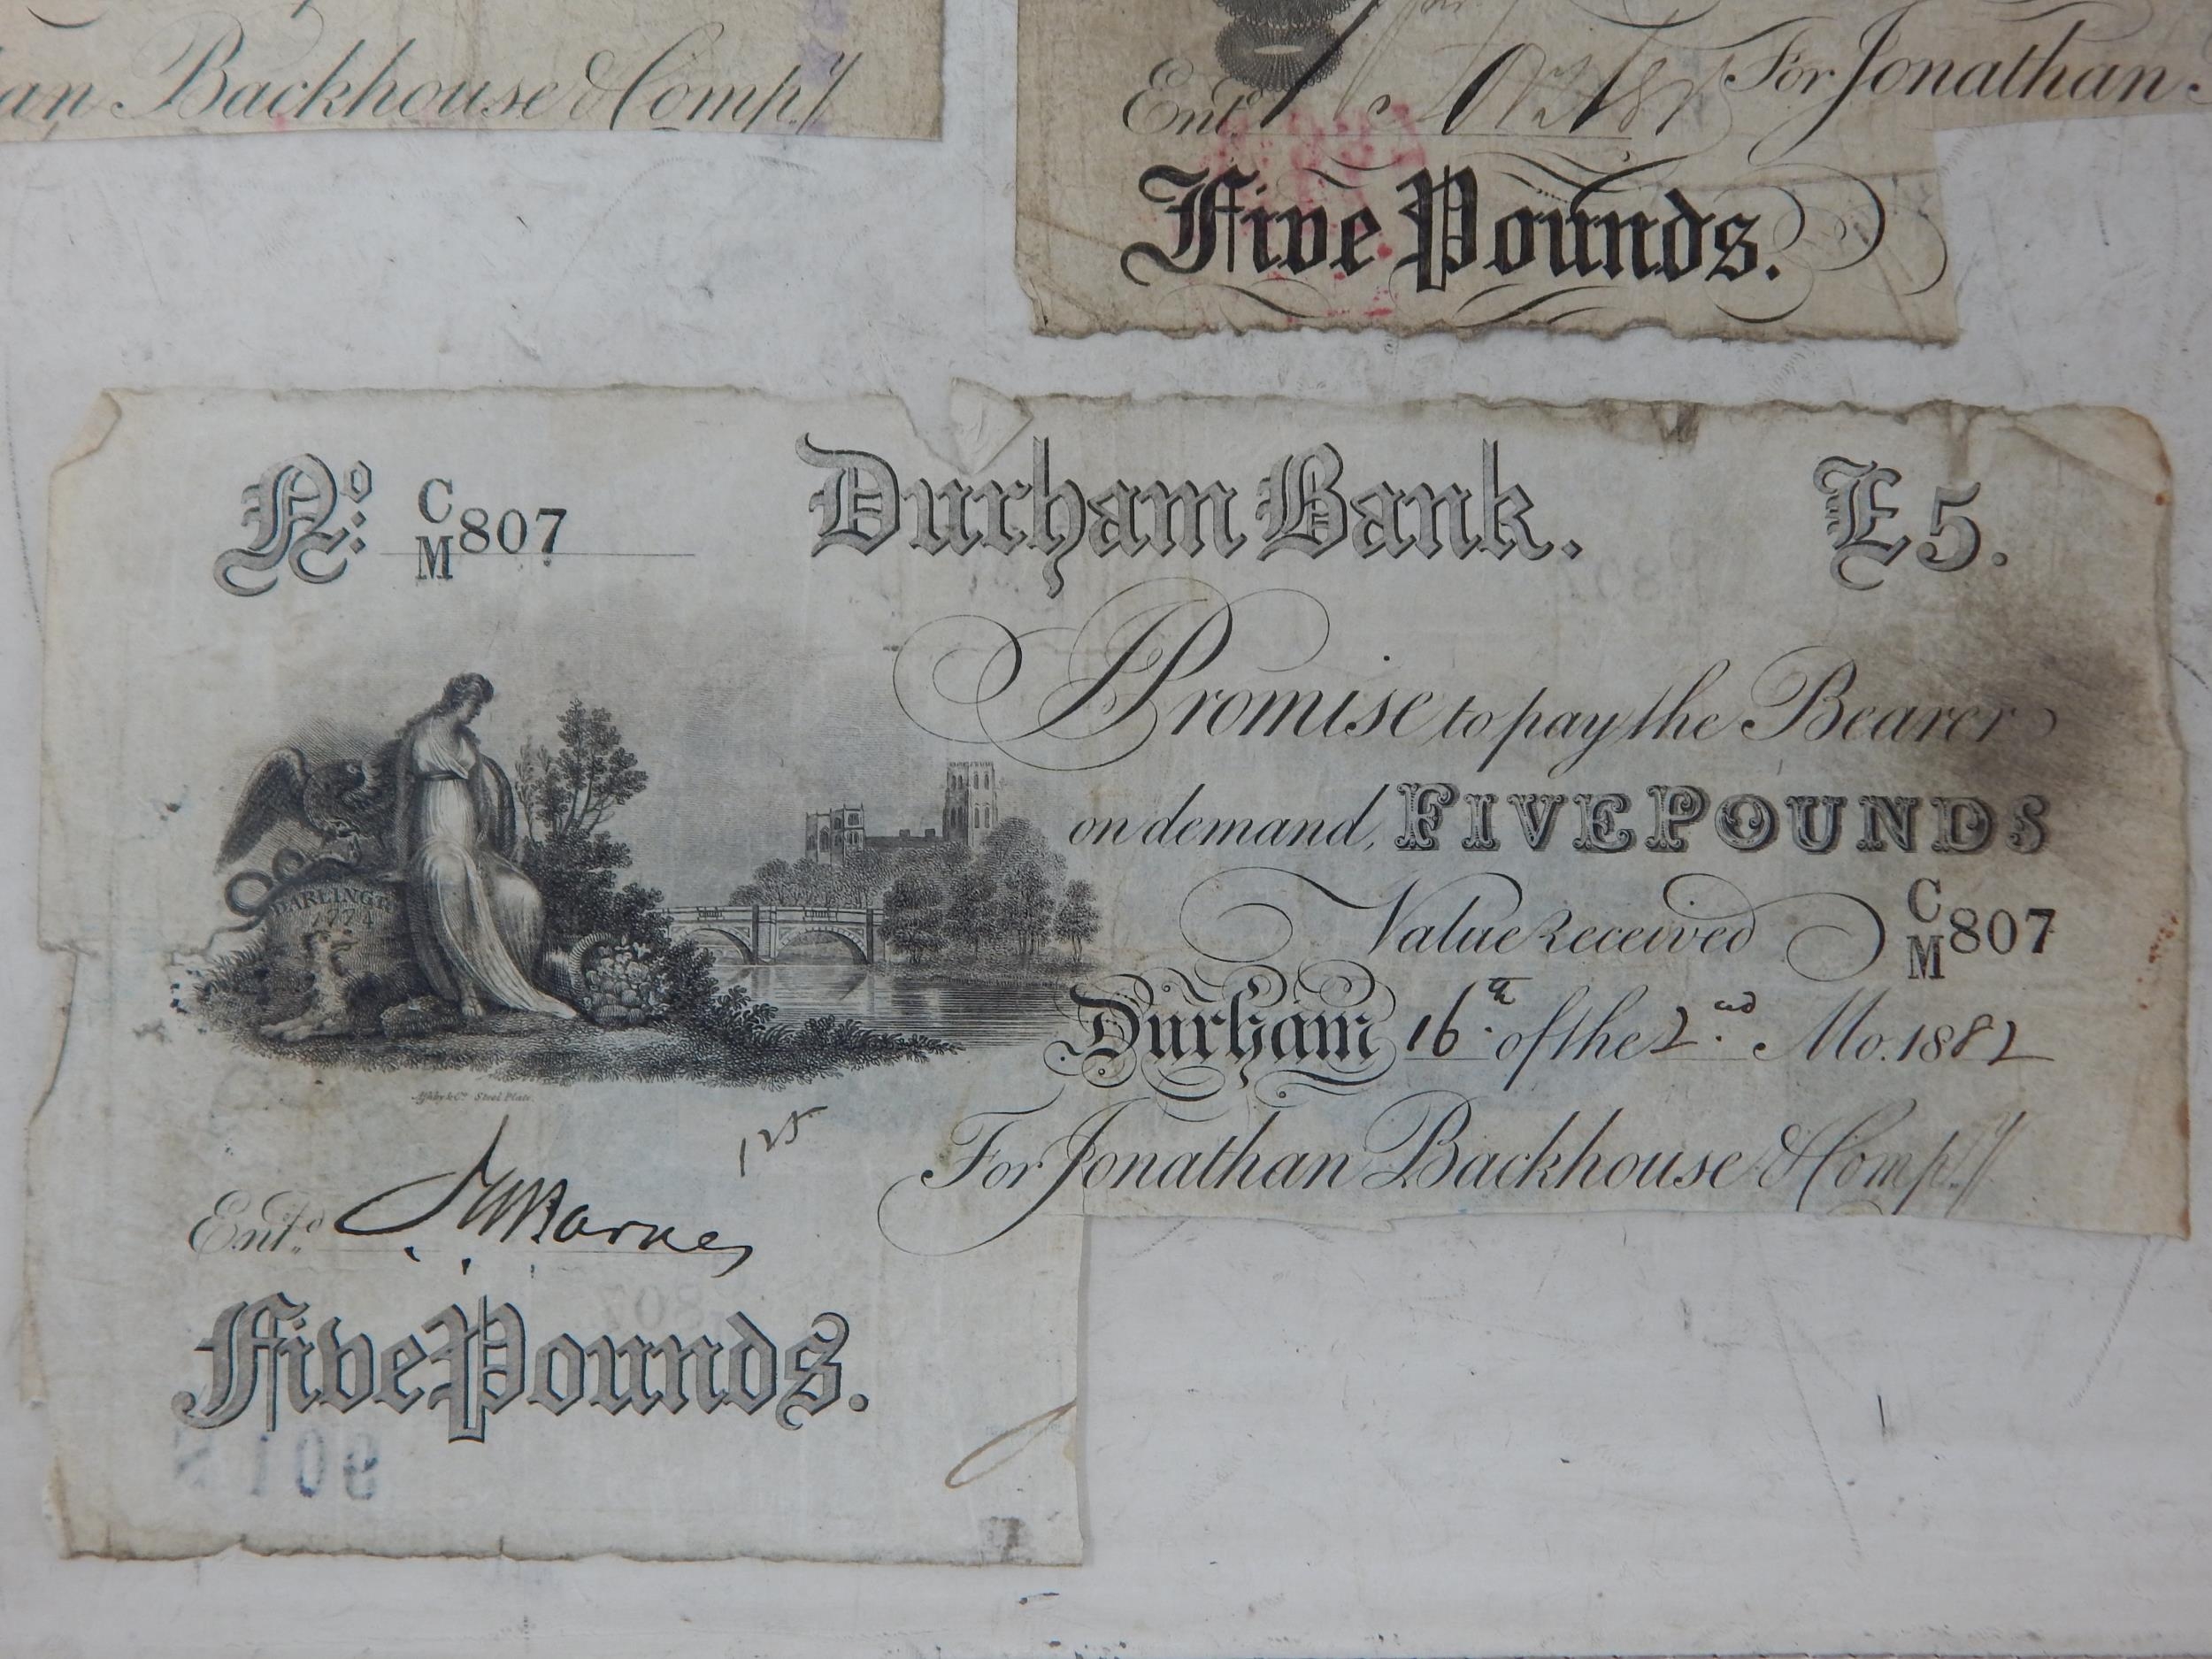 an Backhouse & Comp.y
Ent.d
For Jonathan
Five Pounds.
No. C/M 807
Durham Bank.
£5.
Promise to pay the Bearer
on demand, FIVE POUNDS
Value received C/M 807
Durham 16th of the 2nd Mo. 1882
For Jonathan Backhouse & Comp.y
DARLINGT
1774
Ashby & Co. Steel Plate.
125
Ent.d
Barnes
Five Pounds.